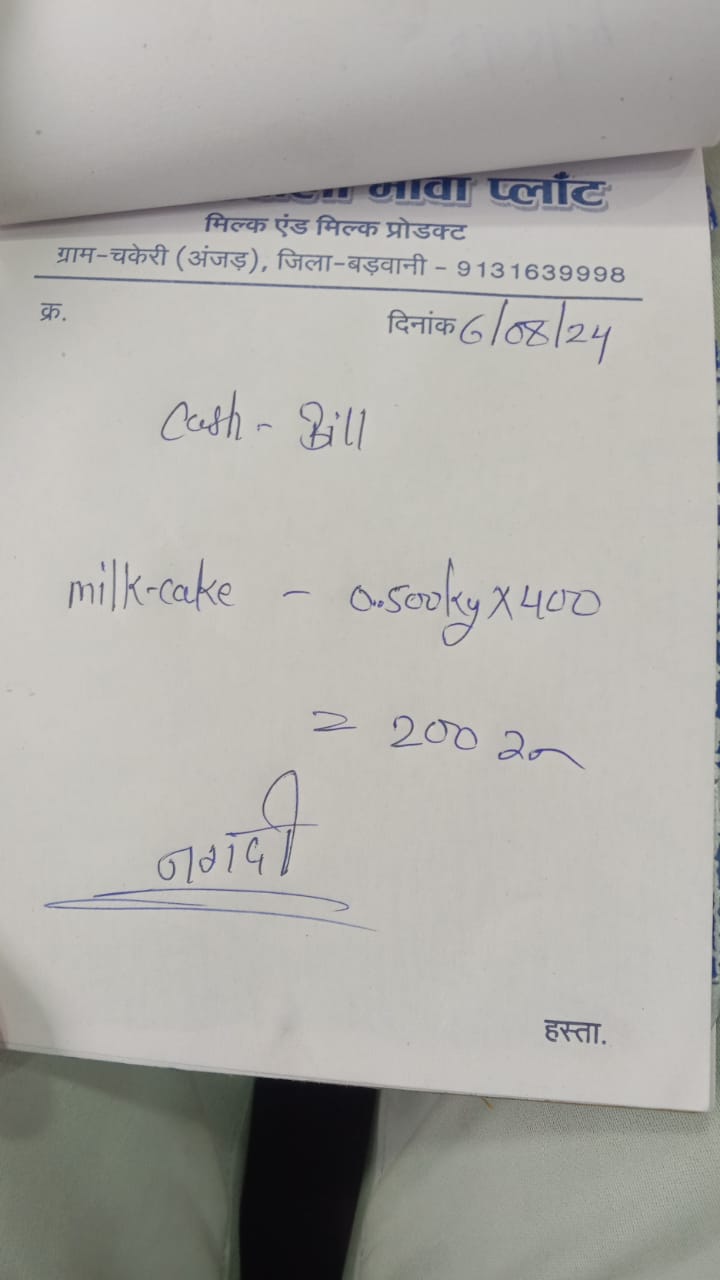 मावा प्लाँट
मिल्क एंड मिल्क प्रोडक्ट
ग्राम-चकेरी (अंजड़), जिला-बड़वानी - 9131639998
क्र. दिनांक 6/08/24
Cash - Bill
milk-cake - 0.500kg X 400
= 200 रु
नगदी
हस्ता.